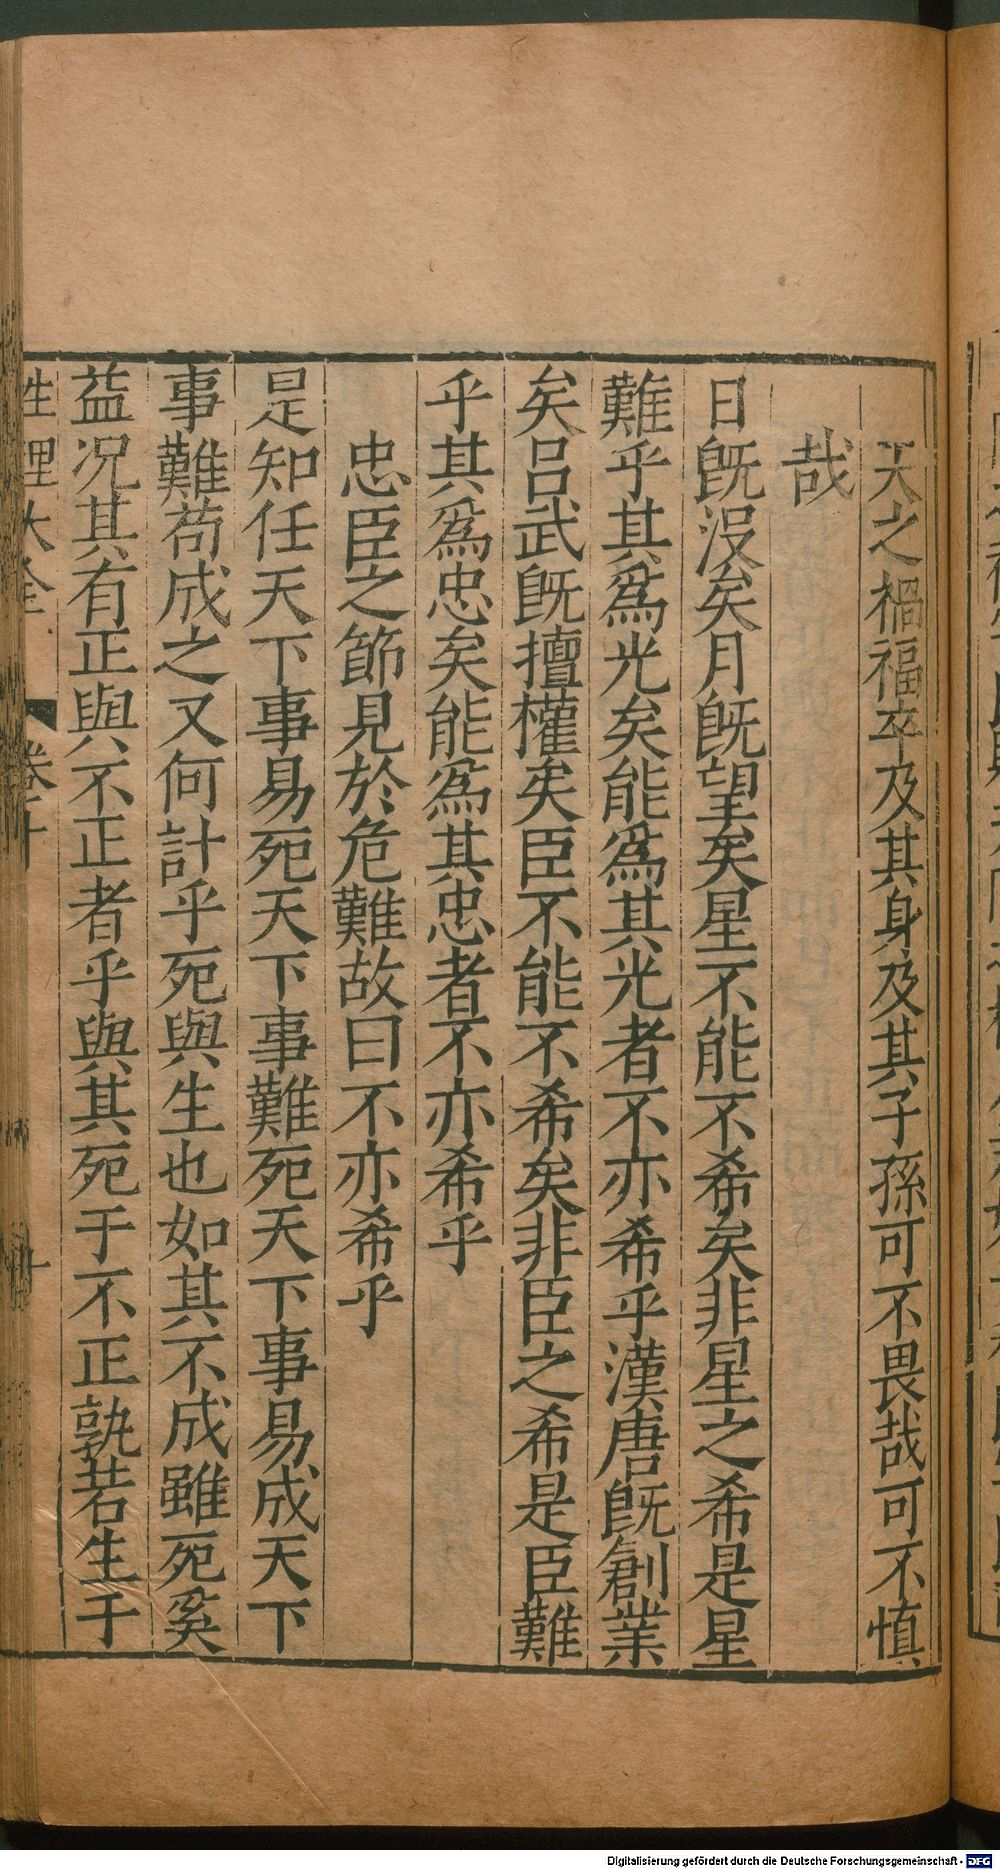 天之禍福卒及其身及其子孫可不畏哉可不慎
哉
日旣没矣月旣望矣星不能不希矣非星之希是星
難乎其爲光矣能爲其光者不亦希乎漢唐旣創業
矣呂武旣擅權矣臣不能不希矣非臣之希是臣難
乎其爲忠矣能爲其忠者不亦希乎
忠臣之節見於危難故曰不亦希乎
是知任天下事易死天下事難死天下事易成天下
事難苟成之又何計乎死與生也如其不成雖死奚
益況其有正與不正者乎與其死于不正孰若生于
性理大全 卷十 十
Digitalisierung gefördert durch die Deutsche Forschungsgemeinschaft - DFG